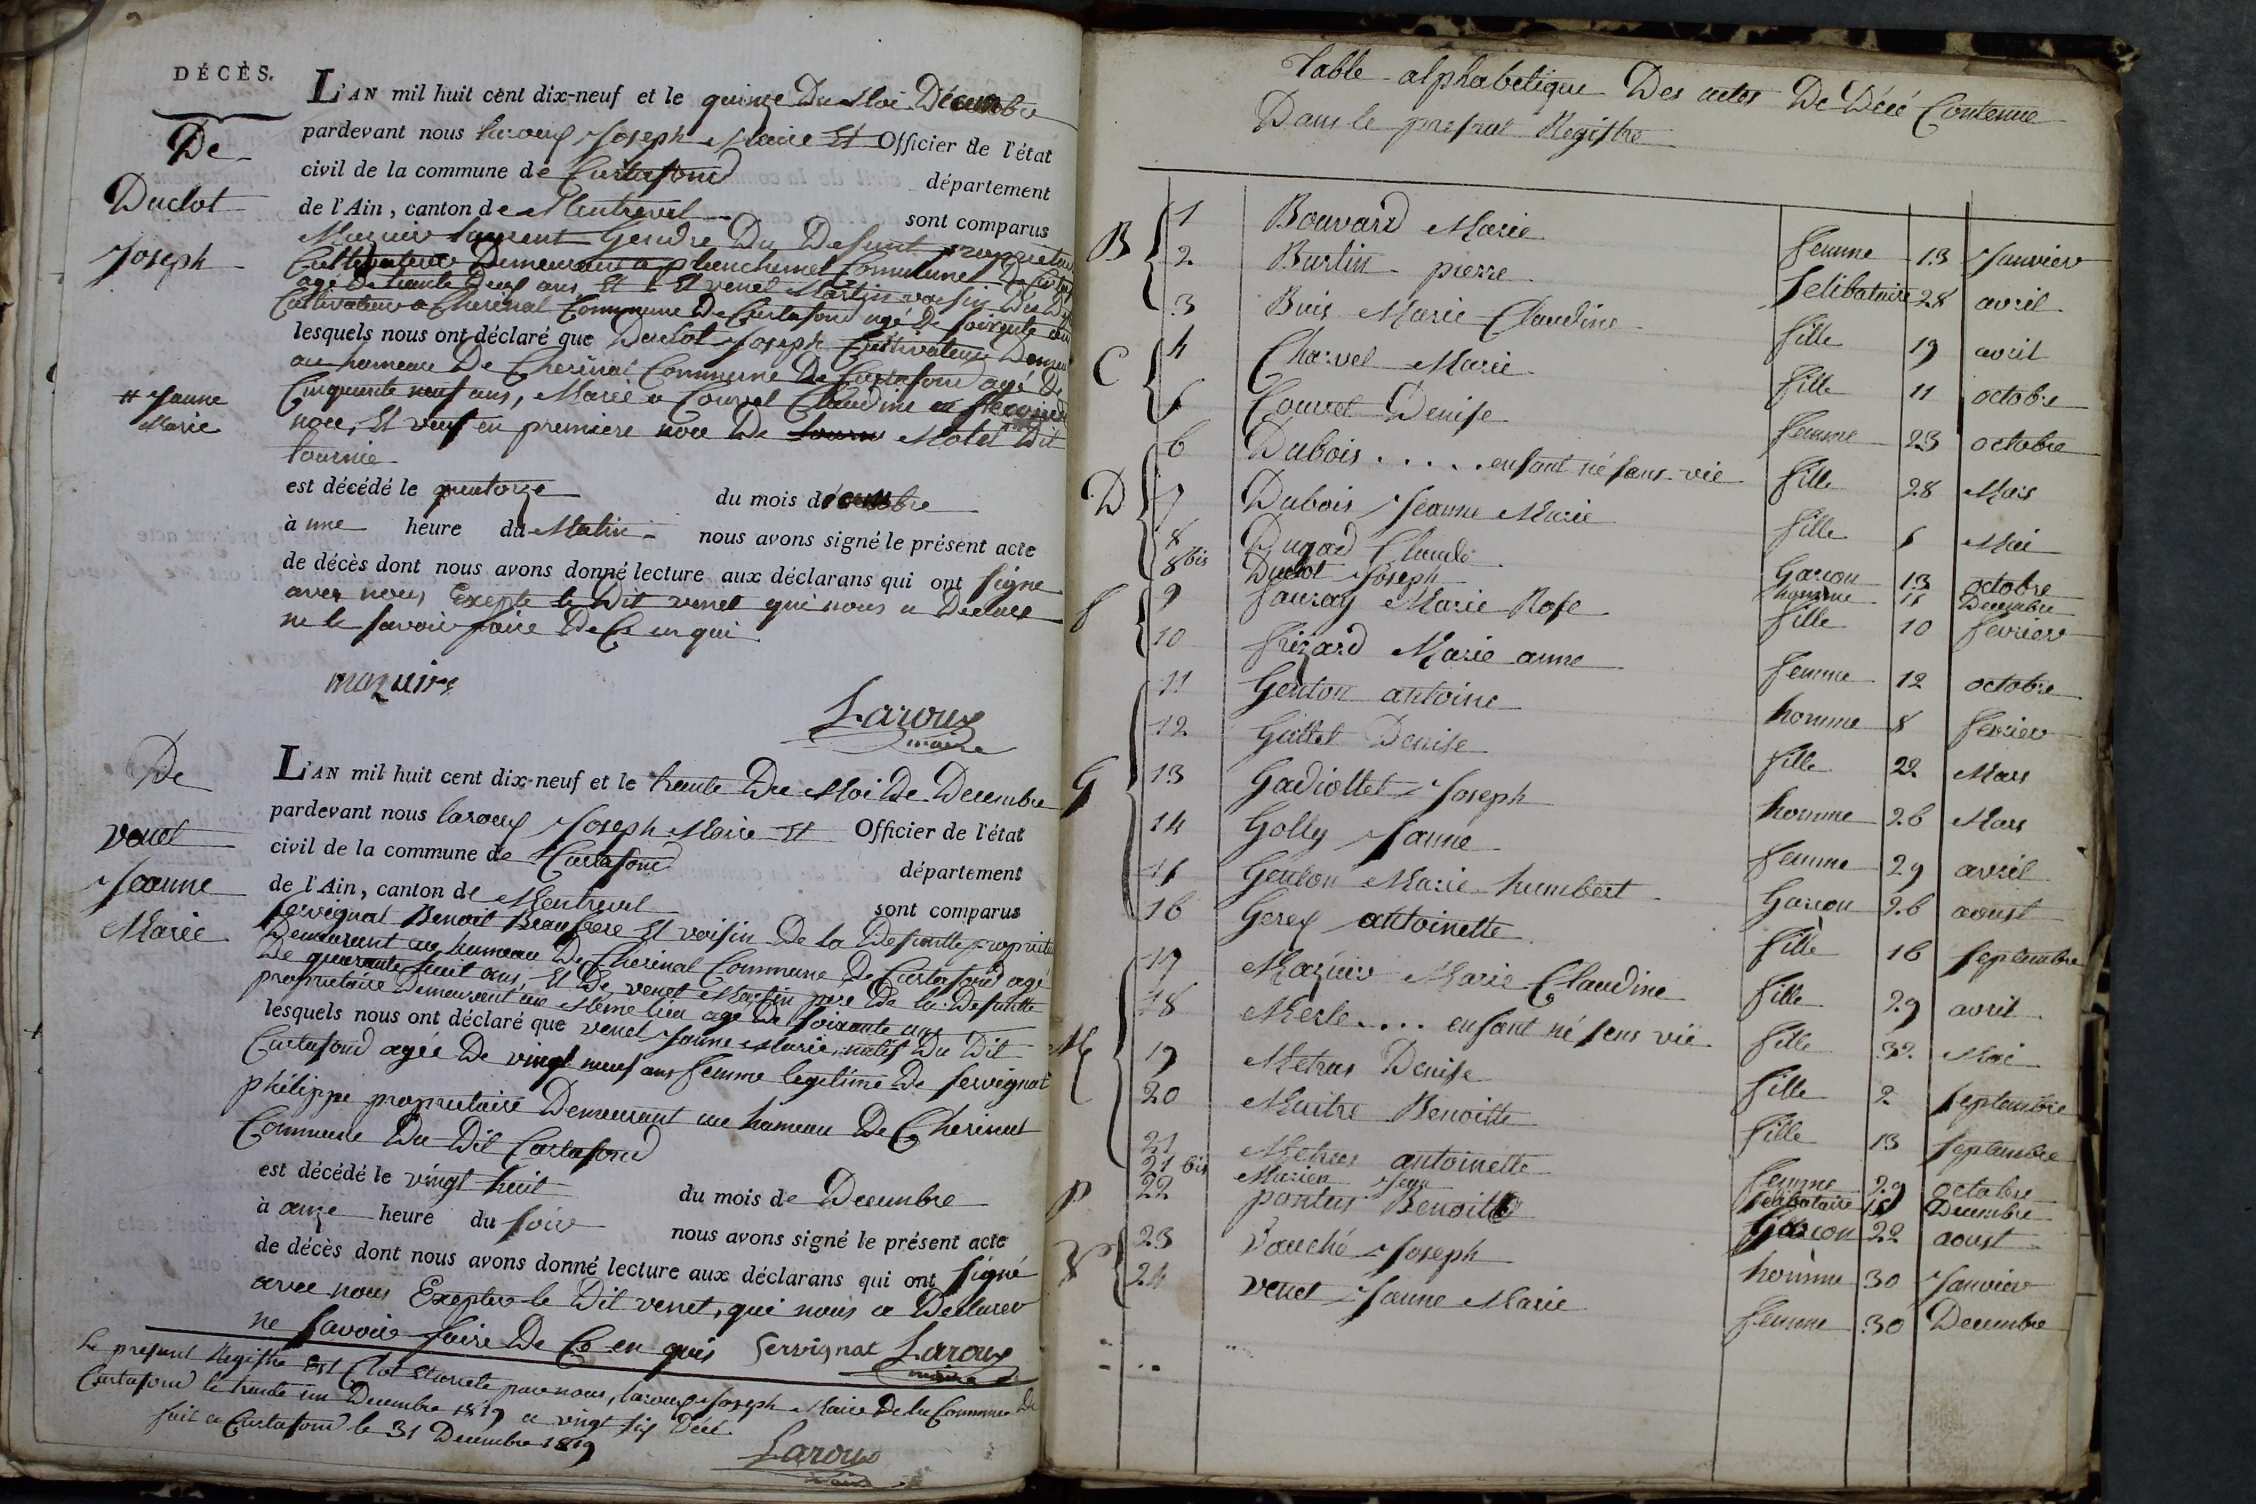 DÉCÈS.
De
Duclot
Joseph
# Jeanne
Marie
L'AN mil huit cent dix-neuf et le quinze Du Moi Décembre
pardevant nous laroux Joseph Maire Et Officier de l'état
civil de la commune de Curtafond département
de l'Ain, canton de Mentrevel sont comparus
Mazuire laurent Gendre Du Defunt propriétaire
Cultivateur Demeurant a planchemel Commune De Curtaf
agé De trente Deux ans Et Et venet Martin voisin Du D
Cultivateur a Cherinal Commune De Curtafond agé De soixante ans
lesquels nous ont déclaré que Duclot Joseph Cultivateur Demeu
au hameau De Cherinal Commune De Curtafond agé De
Cinquante neuf ans, Marié a Couvel Claudine en seconde
noce, Et veuf en premiere noce De Molet Dit
tournie
est décédé le quatorze du mois décembre
à une heure du Matin nous avons signé le présent acte
de décès dont nous avons donné lecture aux déclarans qui ont signe
avec nous Exepte le Dit venet qui nous a Declare
ne le savoir faire De Ce en qui
mazuire
Laroux
maire
De
venet
Jeanne
Marie
L'AN mil huit cent dix-neuf et le trente Du Moi De Decembre
pardevant nous laroux Joseph Maire Et Officier de l'état
civil de la commune de Curtafond département
de l'Ain, canton de Mentrevel sont comparus
servignat Benoit Beaufrere Et voisin De la Defuntte propriet
Demeurant au hameau De Cherinal Commune De Curtafond agé
De quarante huit ans, Et De venet Martin pere De la Defuntte
propriétaire Demeurant au Meme lieu agé De soixante ans
lesquels nous ont déclaré que venet Jeanne Marie, natif Du Dit
Curtafond agée De vingt neuf ans femme legitime De servignat
phélippe propriétaire Demeurant au hameau De Cherinal
Commune Du Dit Curtafond
est décédé le vingt huit du mois de Decembre
à onze heure du soir nous avons signé le présent acte
de décès dont nous avons donné lecture aux déclarans qui ont signé
avec nous Exepter le Dit venet, que nous a Declarer
ne savoir faire De Ce en quis Servignat Laroux
maire
Le present Registre Est Clot Et arreté par nous, laroux Joseph Maire De la Commune De
Curtafond le trente un Decembre 1819 a vingt six Décé
fait a Curtafond le 31 Decembre 1819
Laroux
maire
Table alphabetique Des actes De Décé Contenue
Dans le present Registre
B
1 Bouvard Marie femme 13 Janvier
2 Burlin pierre selibataire 28 avril
3 Buis Marie Claudine fille 19 avril
C
4 Charvel Marie fille 11 octobre
5 Couvel Denise femme 23 octobre
D
6 Dubois . . . . . enfant né sans vie fille 28 Mars
7 Dubois Jeanne Marie fille 5 Mai
8 Dugad Claude Garcon 13 octobre
8 bis Duclot Joseph homme 15 Decembre
f
9 fauray Marie Rose fille 10 fevrier
10 frizard Marie anne femme 12 octobre
G
11 Genton antoine homme 8 fevrier
12 Gallet Denise fille 22 Mars
13 Gadiollet Joseph homme 26 Mars
14 Golly Jeanne femme 29 avril
15 Genton Marie humbert Garcon 26 aoust
16 Gerex antoinette fille 16 septembre
M
17 Mazuire Marie Claudine fille 29 avril
18 Merle . . . . enfant né sens vie fille 32 Mai
19 Metras Denise fille 2 septembre
20 Maitre Benoitte fille 13 septembre
21 Metras antoinette femme 29 octobre
21 bis Marien selibataire 15 Decembre
P
22 pontus Benoitte Garcon 22 aoust
V
23 Vauché Joseph homme 30 Janvier
24 venet Jeanne Marie femme 30 Decembre